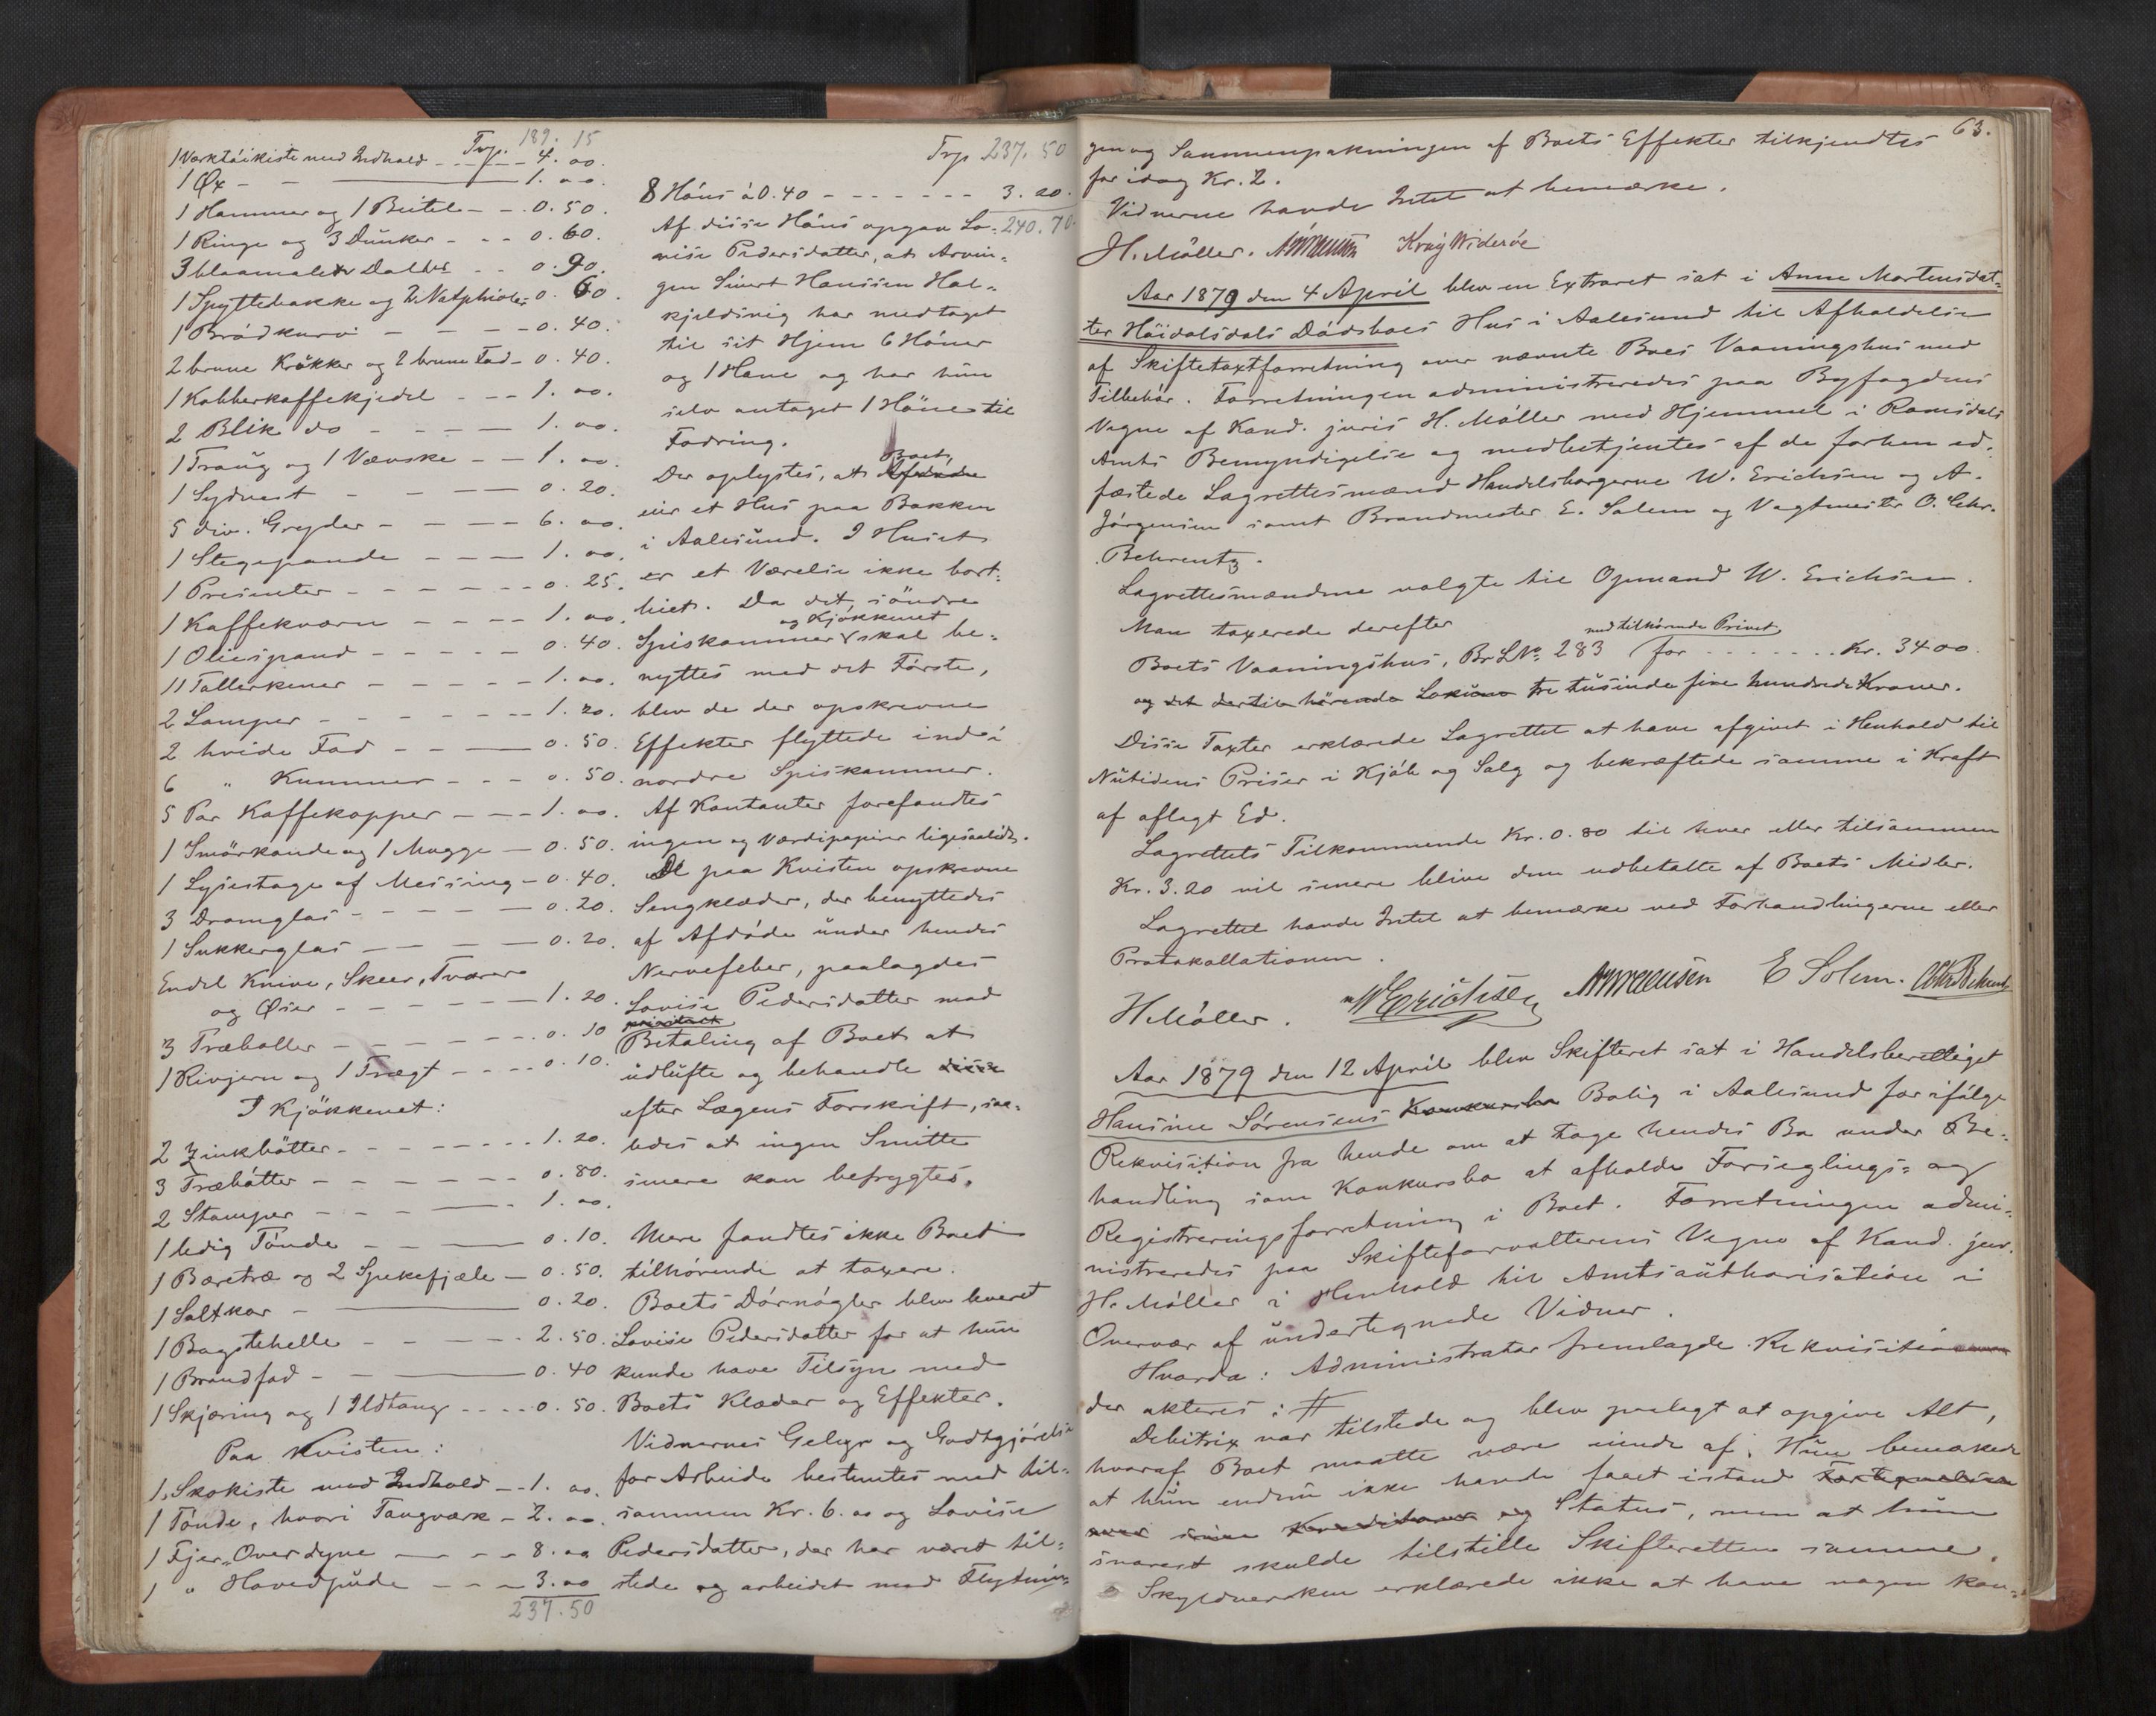 Trp. 189. 15
1 Værktöikiste med Indhold - - - - 4. 00.
1 Øx - - - 1. 00.
1 Hammer og 1 Beitel - - 0. 50.
1 Ringe og 3 Dunker - - - 0. 60.
3 blaamalede Daller - - 0. 90.
1 Spyttebakke og 2 Natpotter 0. 60.
1 Brödkurv - - - - 0. 40.
2 brune Krükker og 2 brune Fad - 0. 40.
1 Kobberkaffekjedel - - - 1. 00.
2 Blik do - - - - 1. 00.
1 Traug og 1 Vævske - - 1. 00.
1 Sydvest - - - - 0. 20.
5 div. Gryder - - - - 6. 00.
1 Stegepande - - - - 1. 00.
1 Presenter - - - - - 0. 25.
1 Kaffekværn - - - - 1. 00.
1 Oliespand - - - - - 0. 40.
11 Tallerkener - - - - - 1. 00.
2 Lamper - - - - - - 1. 20.
2 hvide Fad - - - - 0. 50.
6 " Kummer - - - 0. 50.
5 Par Kaffekopper - - - 1. 00.
1 Smörkande og 1 Mugge - 0. 50.
1 Lysestage af Messing - 0. 40.
3 Dramglas - - - - - 0. 20.
1 Sukkerglas - - - - 0. 20.
Endel Knive, Skeer, Tvarer
og Øser - - - - - 1. 20.
3 Træboller - - - - - - 0. 10
1 Rivjern og 1 Tragt - - - - 0. 10.
I Kjökkenet:
2 Zinkbötter - - - - - - - 1. 20.
3 Træbötter - - - - - - 0. 80.
2 Stamper - - - - - 1. 00.
1 ledig Tönde - - - - 0. 10.
1 Bæretræ og 2 Spekefjæle - 0. 50.
1 Saltkar - - - 0. 20.
1 Bagstehelle - - - - - 2. 50.
1 Brandfad - - - 0. 40
1 Skjæring og 1 Ildtang - - - - 0. 50.
Paa Kvisten:
1 Skokiste med Indhold - - 1. 00.
1 Tönde, hvori Tangværk - 2. 00.
1 Fjer-Overdyne - - - - 8. 00
1 " Hovedpude - - - 3. 00
237. 50
Trp 237. 50
8 Höns à 0.40 - - - - - - - 3. 20.
Af disse Höns opgav Lo- 240. 70.
vise Pedersdatter, at Arvin-
gen Sivert Hanssen Hal-
kjeldsvig har medtaget
til sit Hjem 6 Höner
og 1 Hane og har hun
selv antaget 1 Höne til
Fodring.
Boet
Der oplystes, at Afdöde
eier et Hus paa Bakken
i Aalesund. I Huset
er et Værelse ikke bort-
leiet. Da det söndre
og Kjökkenet
Spiskammer skal be-
nyttes med det Förste,
blev de der opskrevne
Effekter flyttede ind i
nordre Spiskammer.
Af Kontanter forefandtes
ingen og Værdipapirer ligesaalidt.
De paa Kvisten opskrevne
Sengklæder, der benyttedes
af Afdöde under hendes
Nervefeber, paalagdes
Lovise Pedersdatter mod
Betaling af Boet at
udlufte og behandle disse
efter Lægens Forskrift, saa-
ledes at ingen Smitte
senere kan befrygtes.
Mere fandtes ikke Boet
tilhörende at taxere.
Boets Dörnögler blev leveret
Lovise Pedersdatter for at hun
kunde have Tilsyn med
Boets Klæder og Effekter.
Vidnernes Gebyr og Godtgjörelse
for Arbeide bestemtes med til-
sammen Kr. 6. 00 og Lovise
Pedersdatter, der har været til-
stede og arbeidet med Flytnin-
63.
gen og Sammenpakningen af Boets Effekter tilkjendtes
for idag Kr. 2.
Vidnerne havde Intet at bemærke.
H. Möller. Kruy Wideröe
Aar 1879 den 4 April blev en Extraret sat i Anne Martensdat-
ter Höidalsdals Dödsboes Hus i Aalesund til Afholdelse
af Skiftetaxtforretning over nævnte Boes Vaaningshus med
Tilbehör. Forretningen administreredes paa Byfogdens
Vegne af Kand. juris H. Möller med Hjemmel i Romsdals
Amts Bemyndigelse og medbetjentes af de forhen ed-
fæstede Lagrettesmænd Handelsborgerne W. Erichsen og A.
Jörgensen samt Brandmester E. Solem og Vagtmester O. Chr.
Behrentz.
Lagrettesmændene valgte til Opmand W. Erichsen.
Man taxerede derefter
med tilhörende Privet
Boets Vaaningshus, Br. L. No. 283 for - - - - - - - Kr. 3400.
og det dertil hörende Lokum tre tusinde fire hundrede Kroner.
Disse Taxter erklærede Lagrettet at have afgivet i Henhold til
Nutidens Priser i Kjöb og Salg og bekræftede samme i Kraft
af aflagt Ed.
Lagrettets Tilkommende Kr. 0. 80 til hver eller tilsammen
Kr. 3. 20 vil senere blive dem udbetalte af Boets Midler.
Lagrettet havde Intet at bemærke ved Forhandlingerne eller
Protokollationen.
H Möller. W Erichsen E Solem.
Aar 1879 den 12 April blev Skifteret sat i Handelsberettiget
Hansine Sörensens Konkursbo Bolig i Aalesund for ifölge
Rekvisition fra hende om at tage hendes Bo under Be-
handling som Konkursbo at afholde Forseglings- og
Registreringsforretning i Boet. Forretningen admi-
nistreredes paa Skifteforvalterens Vegne af Kand. jur.
H. Möller i Henhold til Amtsauthorisation i
Overvær af undertegnede Vidner.
Hvorda: Administrator fremlagde Rekvisition
der akteres i #
Debitrix var tilstede og blev paalagt at opgive Alt,
hvoraf Boet maatte være eiende af. Hun bemærkede
at hun endnu ikke havde faaet istand Fortegnelse
over sine Kreditorer og Status, men at hun
snarest skulde tilstille Skifteretten samme.
Skyldnersken erklærede ikke at have nogen kon-